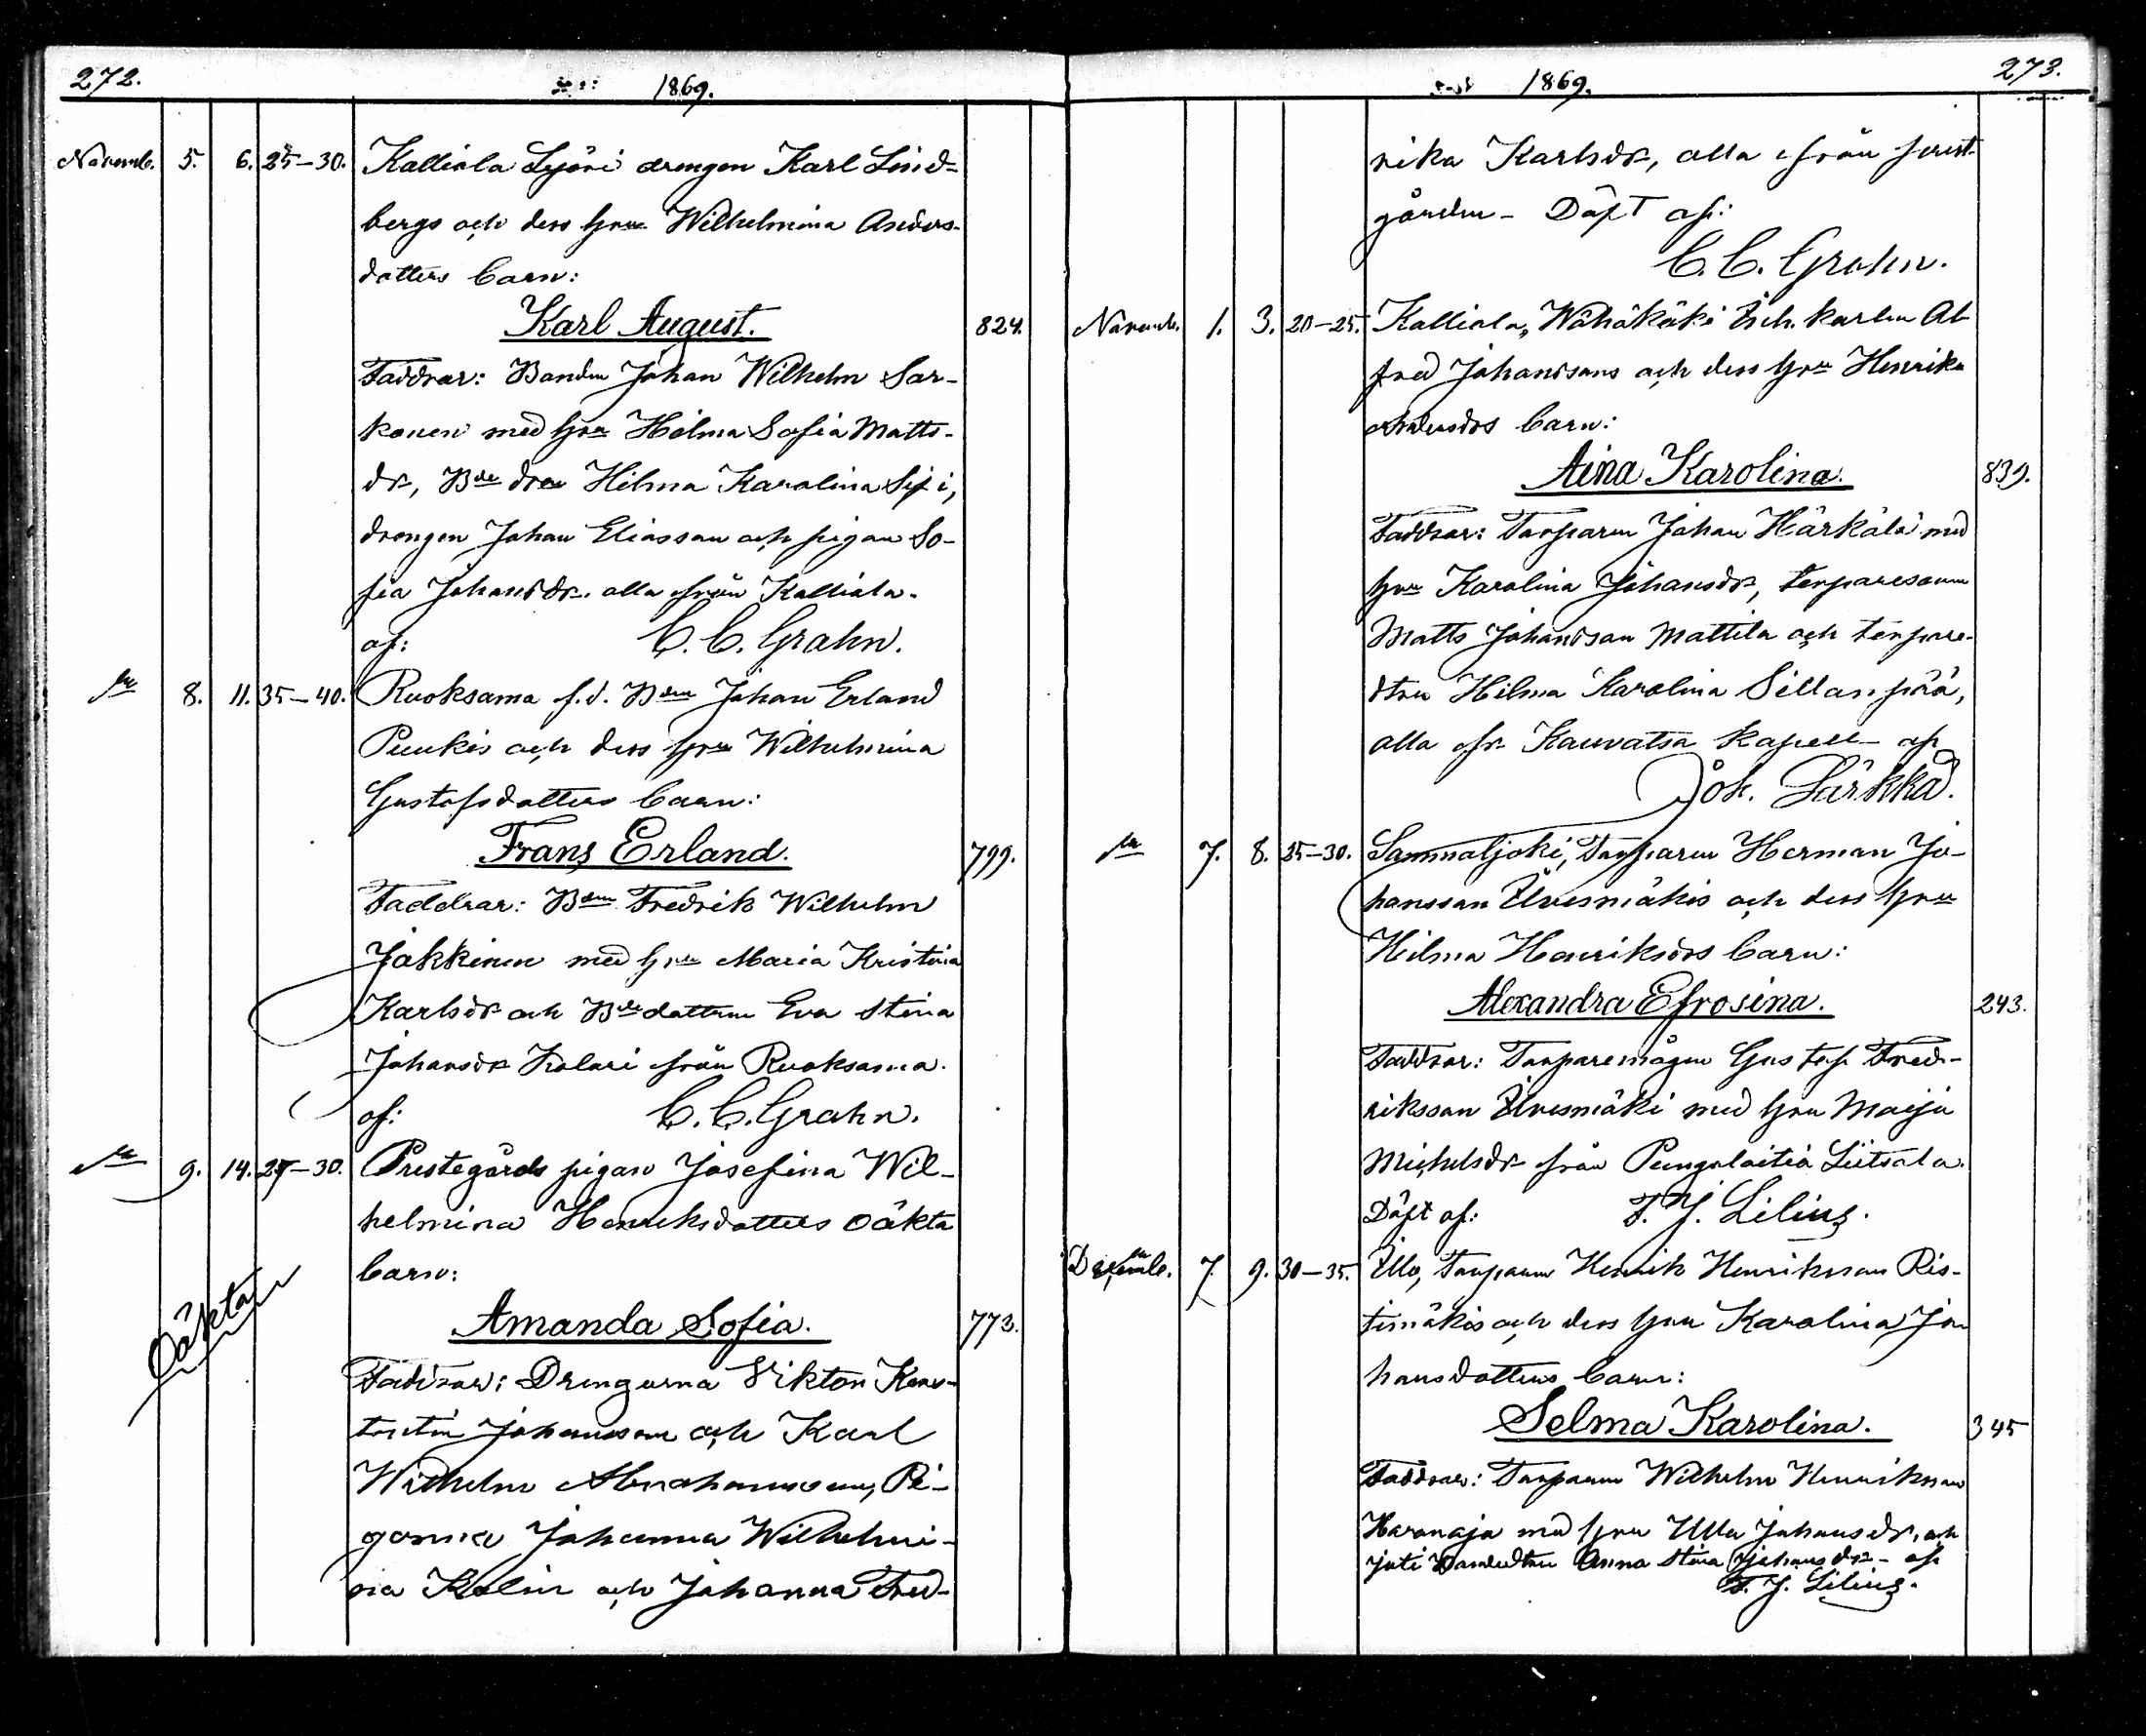 272.
1869.
Novemb. 5. 6. 25–30. Kalliala Lyöri drengen Karl Lind-
bergs och dess hru Wilhelmina Anders-
dotters barn:
Karl August. 824.
Faddrar: Bonden Johan Wilhelm Sar-
konen med hru Hilma Sofia Matts-
dr, Bde dren Hilma Karolina
drengen Johan Eliasson och pigan So-
fia Johansdr. alla från Kalliala.
af: C. C. Grahn.
8. 11. 35–40. Ruoksama f.d. Bden Johan Erland
Puukis och dess hru Wilhelmina
Gustafsdotters barn:
Frans Erland. 799.
Faddrar: Bden Fredrik Wilhelm
Jakkinen med hru Maria Kristina
Karlsdr och Bdedottern Eva Stina
Johansdr Kolari från Ruoksama.
af: C. C. Grahn.
9. 14. 25–30. Prestegårds pigan Josefina Wil-
helmina Henriksdotters oäkta
barn:
Oäkta
Amanda Sofia. 773.
Faddrar: Drengarna Viktor Kons-
tantin Johansson och Karl
Wilhelm Abrahamsson, Pi-
gorna Johanna Wilhelmi-
na Kolin och Johanna Fred-
273.
1869.
rika Karlsdr, alla från prest-
gården – Döpt af:
C. C. Grahn.
Novemb. 1. 3. 20–25. Kalliala, Wähäkäki Insh. karlen Al-
fred Johanssons och dess hru Henrika
barn:
Aina Karolina. 839.
Faddrar: Torparen Johan Härkälä med
hru Karolina Johansdr, torparesonen
Matts Johansson Mattila och torpare-
dtren Hilma Karolina Sillanpää,
alla fr. Kauvatsa kapell – af
Joh. Särkkä.
7. 8. 25–30. Sammaljoki, Torparen Herman Jo-
hansson Ilvesmäkis och dess hru
Hilma Henriksdrs barn:
Alexandra Efrosina. 243.
Faddrar: Torparemågen Gustaf Fred-
riksson Ilvesmäki med hru Maija
Michelsdr från Pungalaitia Liitsala.
Döpt af: F. J. Lilius.
Decemb. 7. 9. 30–35. Illo, Torparen Henrik Henriksson Ris-
timäkis och dess hru Karolina Jo-
hansdotters barn:
Selma Karolina. 345
Faddrar: Torparen Wilhelm Henriksson
Haranaja med hru Ulla Johansdr. och
Bondedtren Anna Stina Johansdr – af
F. J. Lilius.